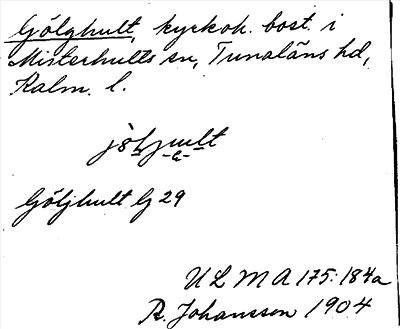 Gölghult, kyrkoh. bost. i
Misterhults sn, Tunaläns hd,
Kalm. l.
Göljhult Gj 29
ULMA 175:184a
R. Johansson 1904